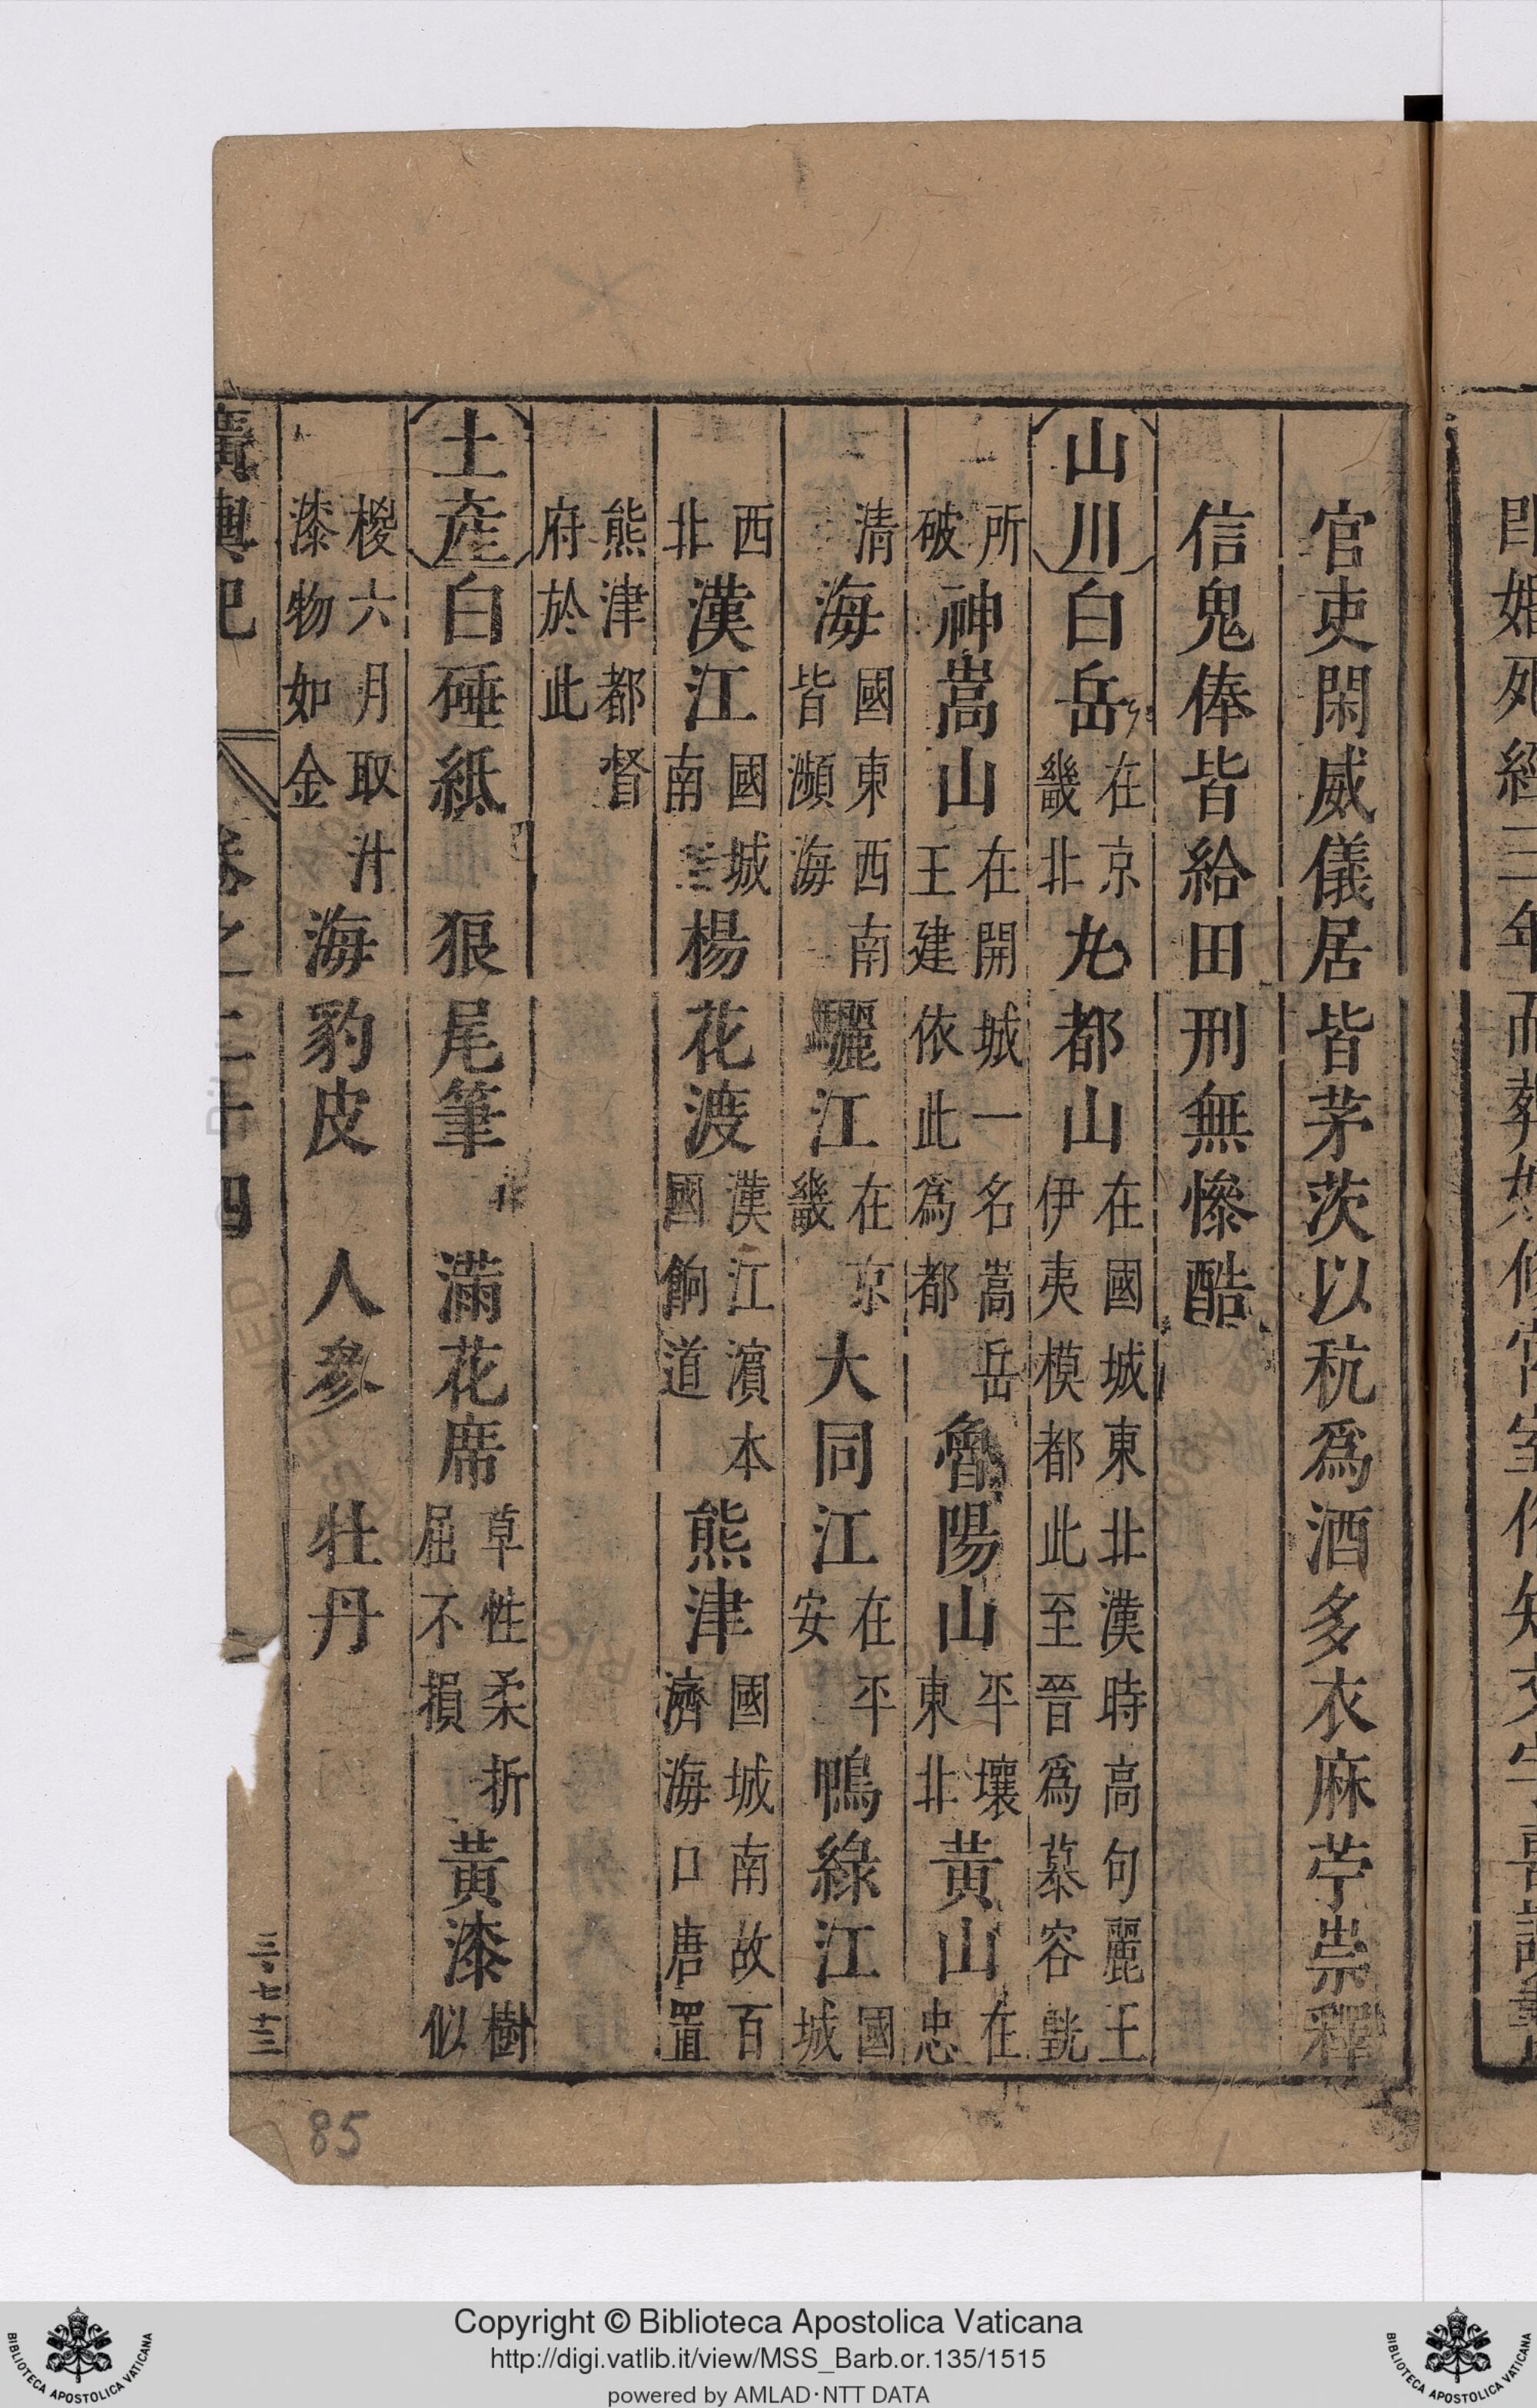 官吏閑威儀居皆茅茨以秔爲酒多衣麻苧崇釋
信鬼俸皆給田刑無慘酷
山川白岳在京畿北丸都山在國城東北漢時高句麗王伊夷模都此至晉爲慕容皝
所破神嵩山在開城一名嵩岳王建依此爲都魯陽山平壤東北黃山在忠
清海國東西南皆瀕海驪江在京畿大同江在平安鴨綠江國城
西北漢江國城南楊花渡漢江濵本國餉道熊津國城南故百濟海口唐置
熊津都督府於此
土產白硾紙 狼尾筆 滿花席草性柔折屈不損黃漆樹似
椶六月取汁漆物如金海豹皮 人參 牡丹
廣輿記 卷之二十四
三〇七十三
85
Copyright © Biblioteca Apostolica Vaticana
http://digi.vatlib.it/view/MSS_Barb.or.135/1515
powered by AMLAD·NTT DATA
BIBLIOTECA APOSTOLICA VATICANA
BIBLIOTECA APOSTOLICA VATICANA